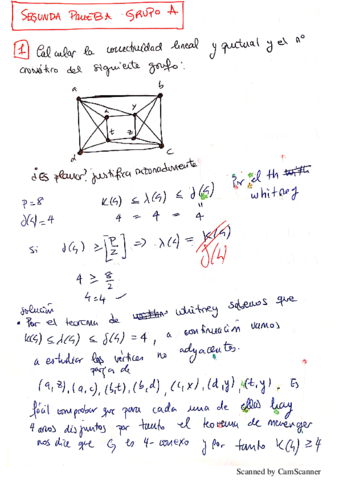 SEGUNDA PRUEBA GRUPO A
1 Calcular la conectividad lineal y puntual y el nº
cromático del siguiente grafo:
a b
x y
t z
d c
¿Es planar? justifica razonadamente
Por el th
whitney
p=8 K(G) ≤ λ(G) ≤ δ(G)
δ(G)=4 4 = 4 = 4
si δ(G) ≥ [p/2] ⇒ λ(G) = K(G) δ(G)
4 ≥ 8/2
4=4 ✓
solución
• Por el teorema de whitney sabemos que
K(G) ≤ λ(G) ≤ δ(G) = 4, a continuación vamos
a estudiar los vértices no adyacentes.
parejas de
(a,z), (a,c), (b,t), (b,d), (c,x), (d,y), (t,y). Es
fácil comprobar que para cada una de ellas hay
4 arcos disjuntos por tanto el teorema de menenger
nos dice que G es 4-conexo y por tanto K(G) ≥ 4
Scanned by CamScanner